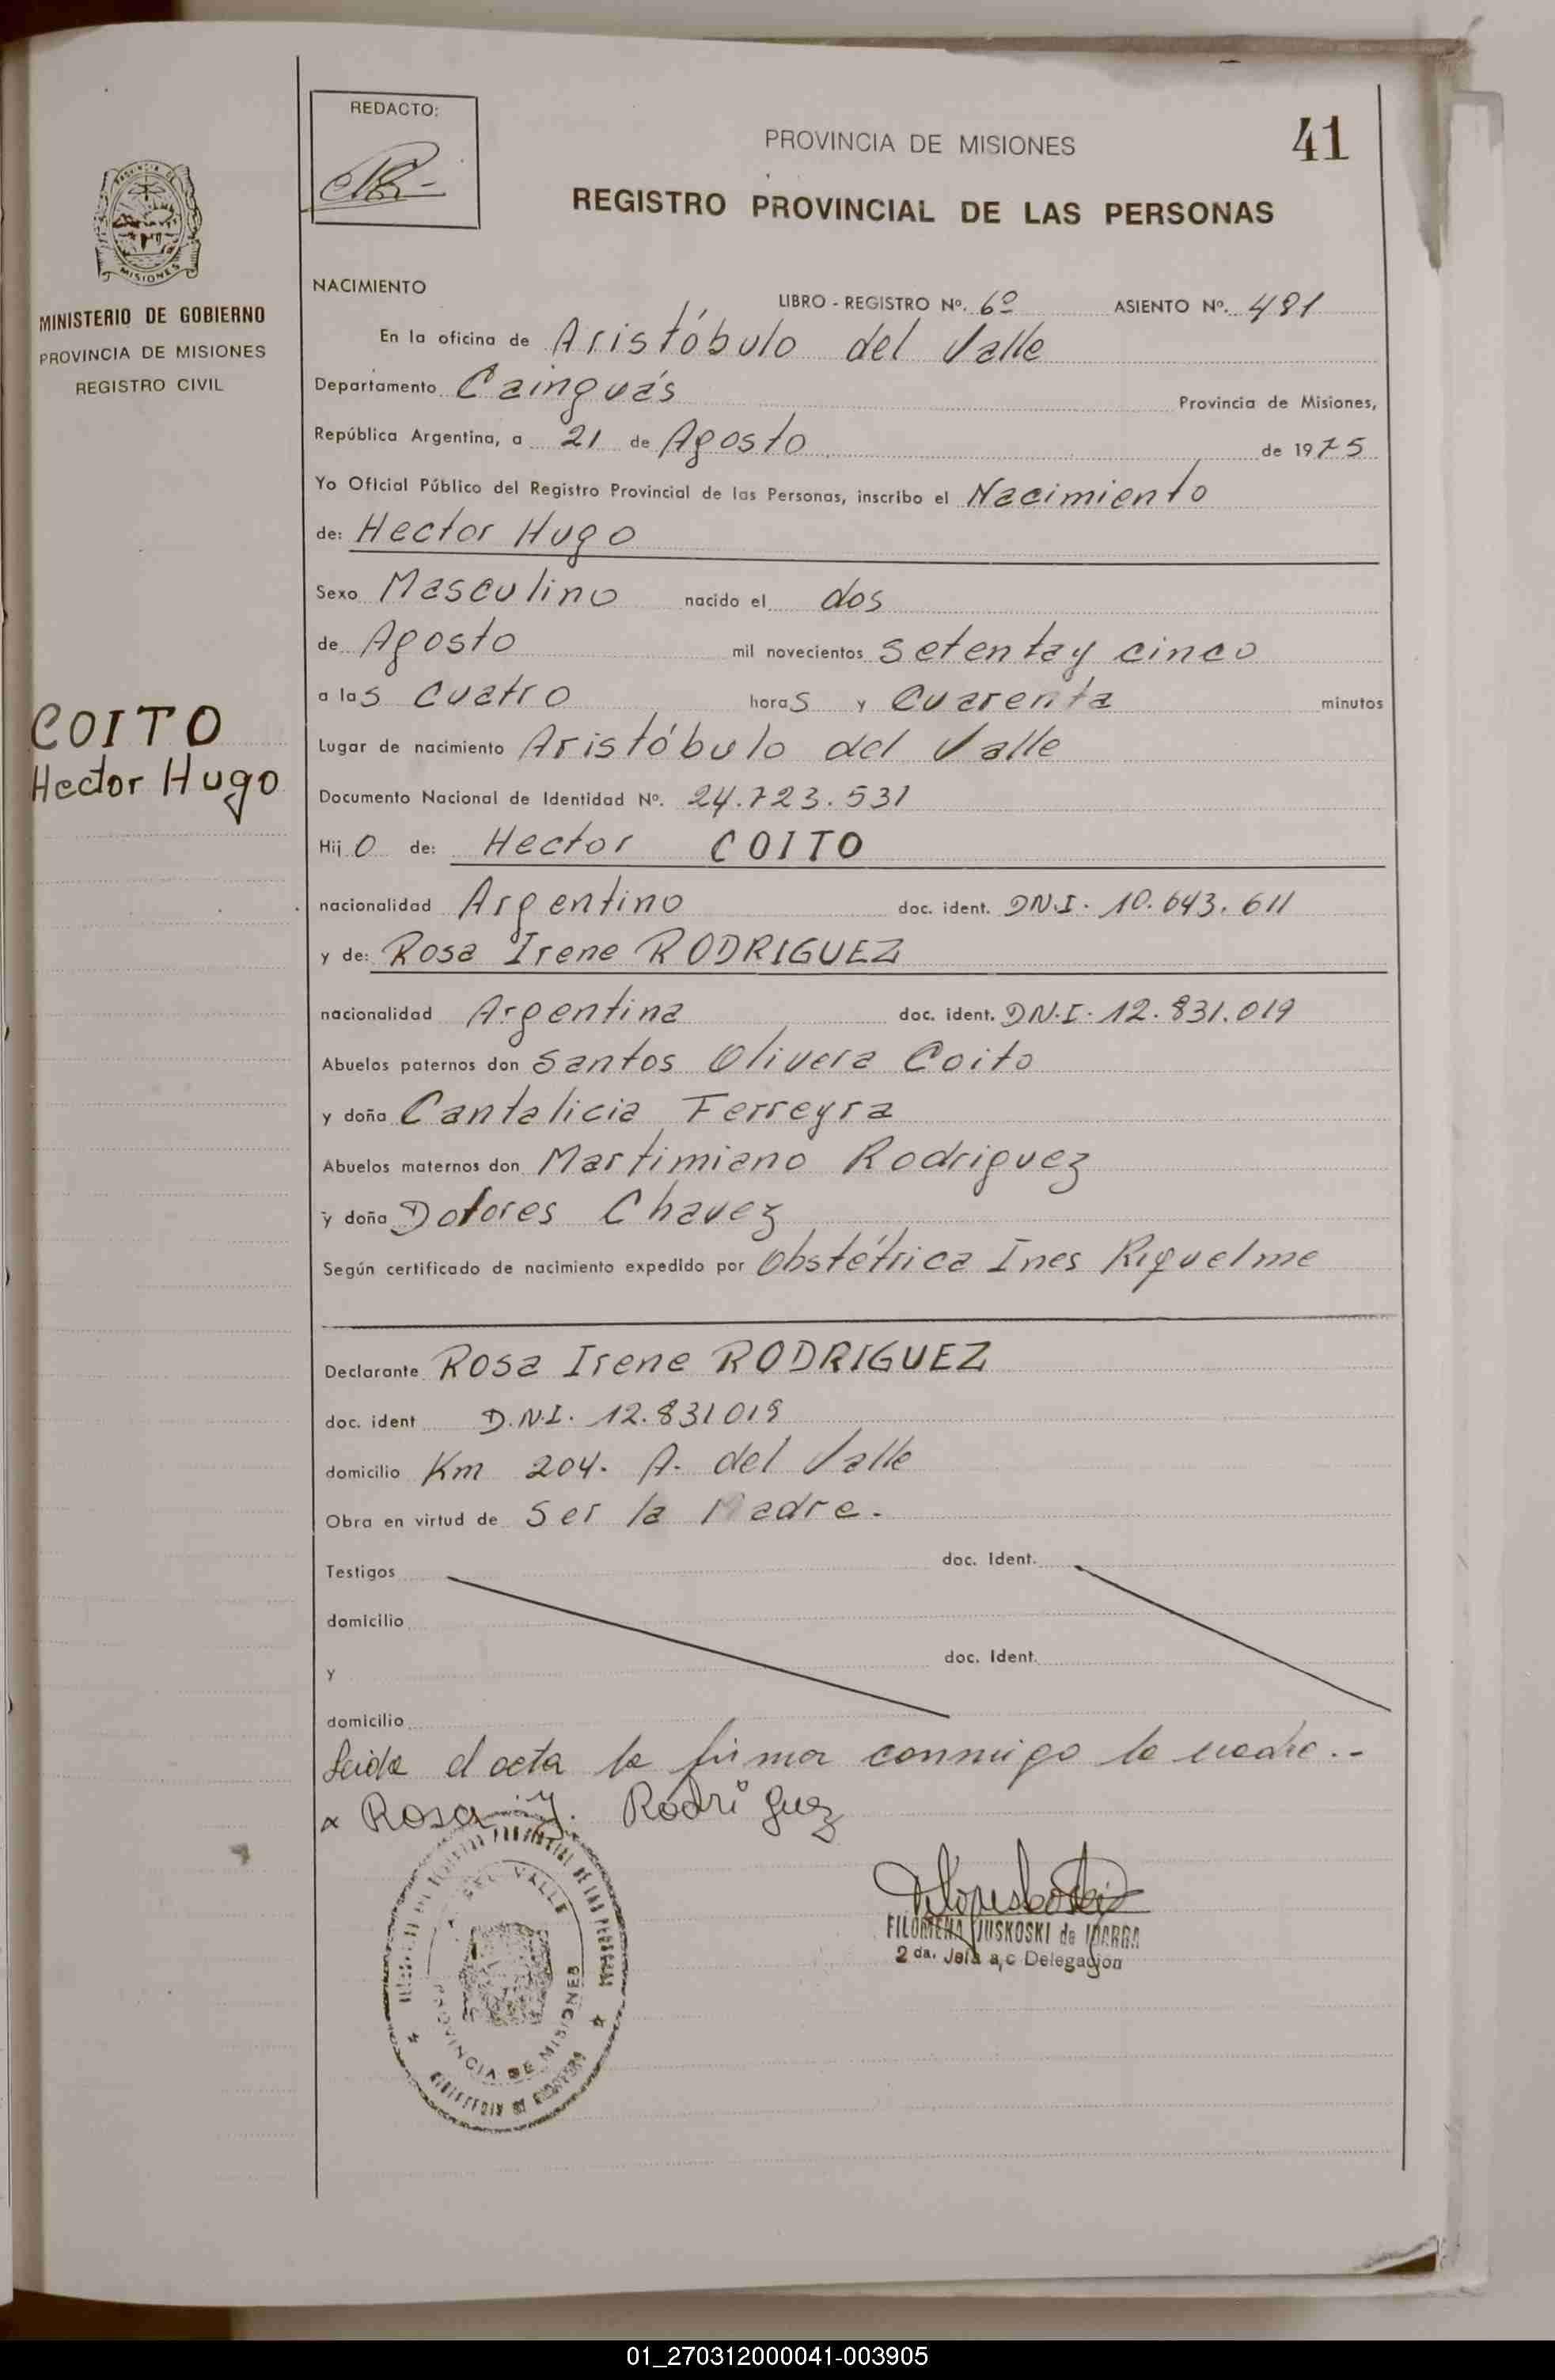 REDACTO:
PROVINCIA DE MISIONES
41
REGISTRO PROVINCIAL DE LAS PERSONAS
MISIONES
MINISTERIO DE GOBIERNO
PROVINCIA DE MISIONES
REGISTRO CIVIL
COITO
Hector Hugo
NACIMIENTO
LIBRO - REGISTRO Nº. 6º ASIENTO Nº. 481
En la oficina de Aristóbulo del Valle
Departamento Cainguás Provincia de Misiones,
República Argentina, a 21 de Agosto de 1975
Yo Oficial Público del Registro Provincial de las Personas, inscribo el Nacimiento
de: Hector Hugo
Sexo Masculino nacido el dos
de Agosto mil novecientos setenta y cinco
a las cuatro horas y cuarenta minutos
Lugar de nacimiento Aristóbulo del Valle
Documento Nacional de Identidad Nº. 24.723.531
Hijo de: Hector COITO
nacionalidad Argentino doc. ident. DN.I. 10.643.611
y de: Rosa Irene RODRIGUEZ
nacionalidad Argentina doc. ident. DN.I. 12.831.019
Abuelos paternos don Santos Olivera Coito
y doña Cantalicia Ferreyra
Abuelos maternos don Martimiano Rodriguez
y doña Dolores Chavez
Según certificado de nacimiento expedido por Obstétrica Ines Riquelme
Declarante Rosa Irene RODRIGUEZ
doc. ident D.N.I. 12.831019
domicilio Km 204. A. del Valle
Obra en virtud de ser la Madre.
Testigos doc. Ident.
domicilio
y doc. Ident.
domicilio
Leida el acta la firma conmigo la madre.-
x Rosa Y. Rodriguez
DEL VALLE
PROVINCIA DE MISIONES
FILOMENA JUSKOSKI de IBARRA
2 da. Jefa a/c Delegación
01_270312000041-003905